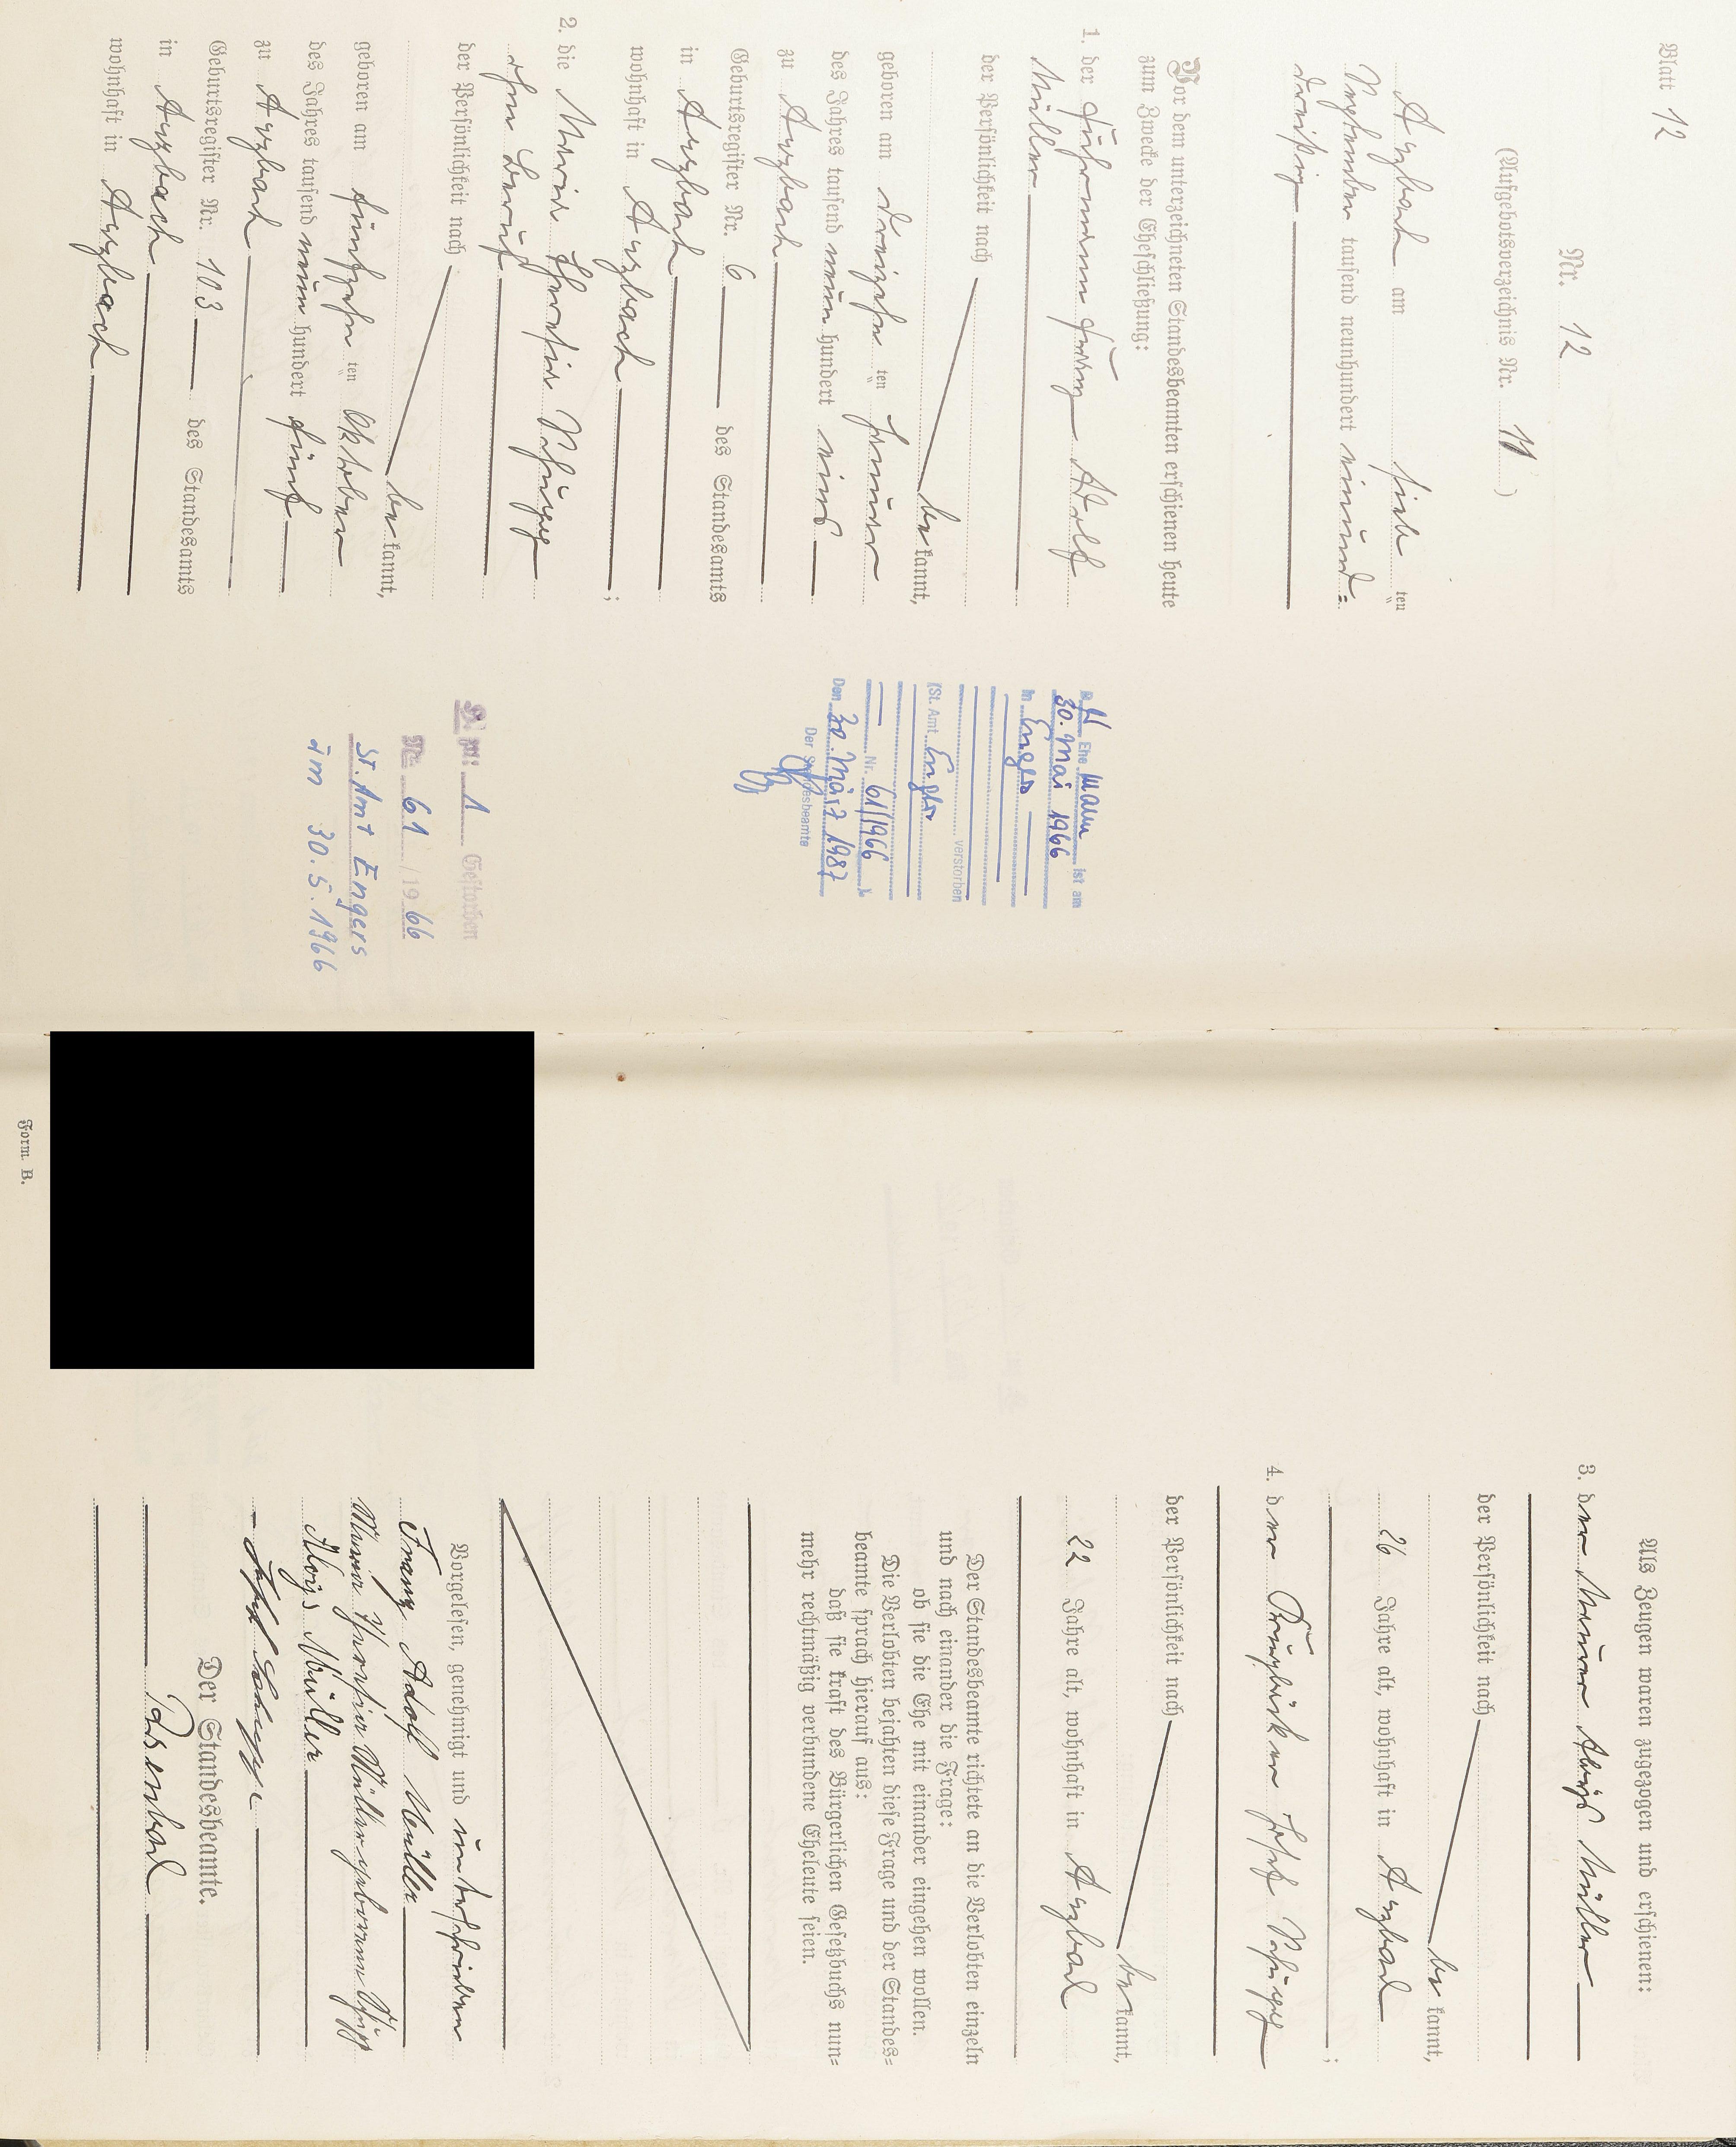 Blatt 12
Nr. 12
(Aufgebotsverzeichnis Nr. 11)
Arzbach am
ten
tausend neunhundert einund=
dreißig
Vor dem unterzeichneten Standesbeamten erschienen heute
zum Zwecke der Eheschließung:
1. der Fuhrmann Franz Adolf
Müller
der Persönlichkeit nach
be kannt,
geboren am dreizehn ten Januar
des Jahres tausend neun hundert eins
zu Arzbach
Geburtsregister Nr. 6 des Standesamts
in Arzbach
wohnhaft in Arzbach
;
2. die Maria Theresia
ohne Beruf
der Persönlichkeit nach
be kannt,
geboren am fünfzehn ten Oktober
des Jahres tausend neun hundert fünf
zu Arzbach
Geburtsregister Nr. 103 des Standesamts
in Arzbach
wohnhaft in Arzbach
Ehe Mann ist am
30. Mai 1966
in Engers
verstorben
(St. Amt Engers
Nr. 61/1966
Den 30. März 1987
Der Standesbeamte
1 Gestorben
Nr. 61 /19 66
St. Amt Engers
am 30.5.1966
Als Zeugen waren zugezogen und erschienen:
3. der Maurer Alois Müller
der Persönlichkeit nach
be kannt,
26 Jahre alt, wohnhaft in Arzbach
;
4. der Josef
der Persönlichkeit nach
be kannt,
22 Jahre alt, wohnhaft in Arzbach
Der Standesbeamte richtete an die Verlobten einzeln
und nach einander die Frage:
ob sie die Ehe mit einander eingehen wollen.
Die Verlobten bejahten diese Frage und der Standes=
beamte sprach hierauf aus:
daß sie kraft des Bürgerlichen Gesetzbuchs nun=
mehr rechtmäßig verbundene Eheleute seien.
Vorgelesen, genehmigt und unterschrieben
Franz Adolf Müller
Maria Theresia Müller geborene
Alois Müller
Josef
Der Standesbeamte.
Form. B.